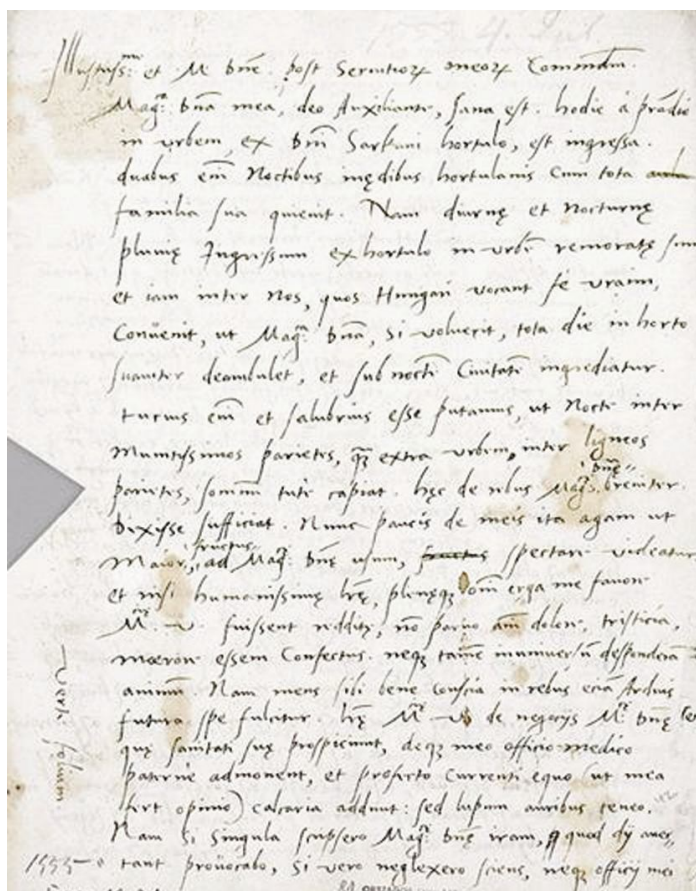 Illustrissme et M. Dne. post Servitiorum meorum Commendm.
Mag: Dna mea, deo Auxiliante, sana est. hodie a prandio
in urbem, ex Dni Sarkani hortulo, est ingressa.
duabus eni Noctibus in ędibus hortulanis Cum tota
familia sua quievit. Nam diurnę et Nocturnę
pluvię Ingressum ex hortulo in urbē remoratę sun
et iam inter Nos, quos Hungari vocant fe uraim,
Convenit, ut Mag: Dna, si voluerit, tota die in horto
suaviter deambulet, et sub noctē Civitatē ingrediatur.
tucius eni et salubrius esse putamus, ut Nocte inter
Munitissimos parietes, quam extra urbem, inter ligneos
parietes, somnū tute capiat. hęc de rebus Mag: Dnę breviter
Dixisse sufficiat. Nunc paucis de meis ita agam ut
Maior, fructus ad Mag: Dnę usum, spectare videatur
et nisi humanissimę lrę, plenęq; omi erga me favore
M. v. fuissent redditę, nō parvo ani dolore, tristicia,
mœrore essem Confectus. neq; tamē
animū Nam mens sibi bene Conscia in rebus eciā Arduis
futura spe fulcitur. lrę M. v. de negocijs M. Dnę
quę sanitati suę prospiciunt, deq; meo officio medico
paterne admonent, et profecto Currenti equo (ut mea
fert opinio) calcaria addunt: sed lupum auribus teneo.
Nam si singula scripsero Mag: Dnę iram, quod dij aver„
tant provocabo, si vero neglexero sciens, neq; officij mei
1555